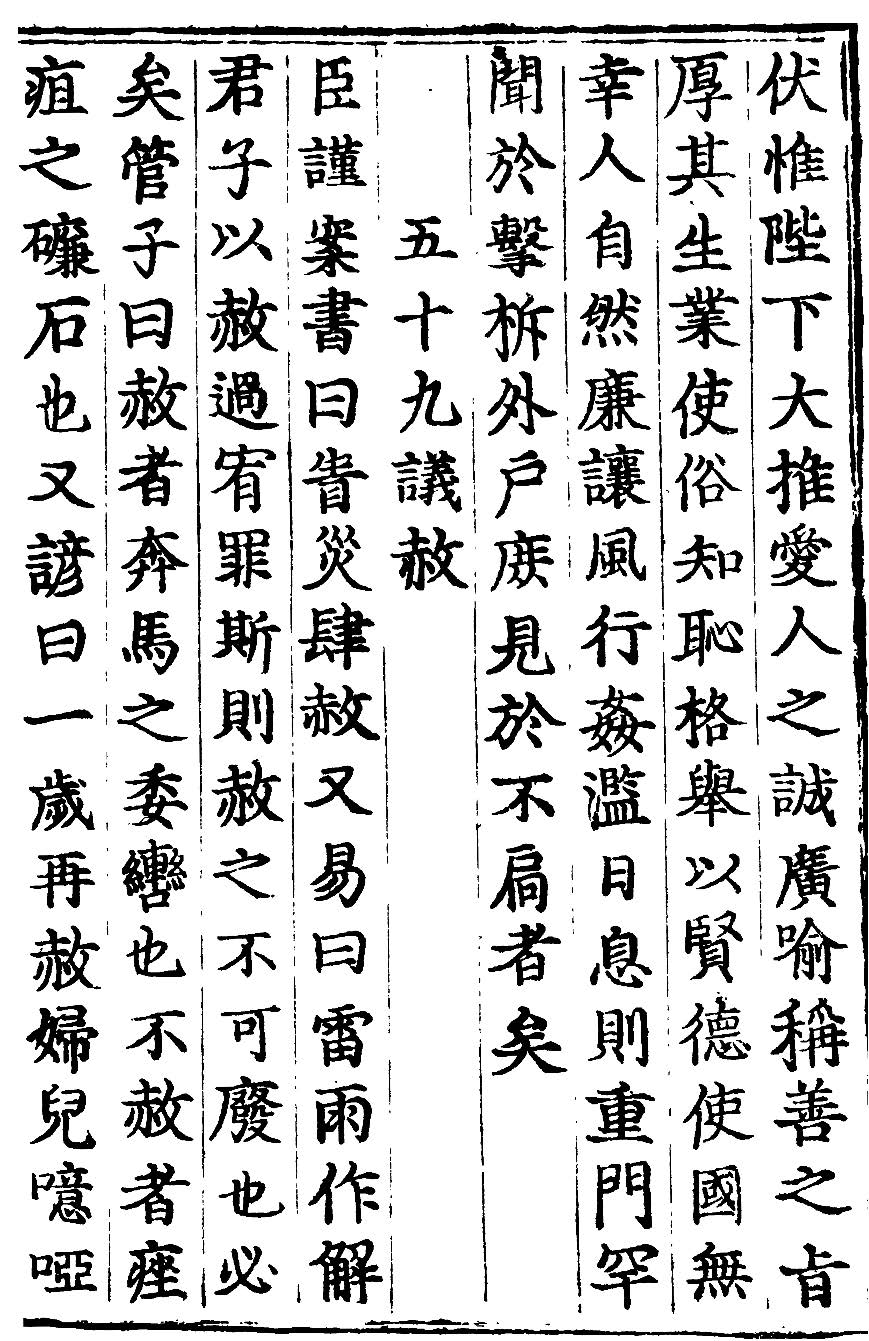 伏惟陛下大推愛人之誠廣喻稱善之㫖
厚其生業使俗知恥格舉以賢德使國無
幸人自然廉讓風行姦濫日息則重門罕
聞於擊柝外戶庻見於不扃者矣
五十九議赦
臣謹案書曰眚災肆赦又易曰雷雨作解
君子以赦過宥罪斯則赦之不可廢也必
矣管子曰赦者奔馬之委轡也不赦者痤
疽之礦石也又諺曰一歲再赦婦兒噫啞